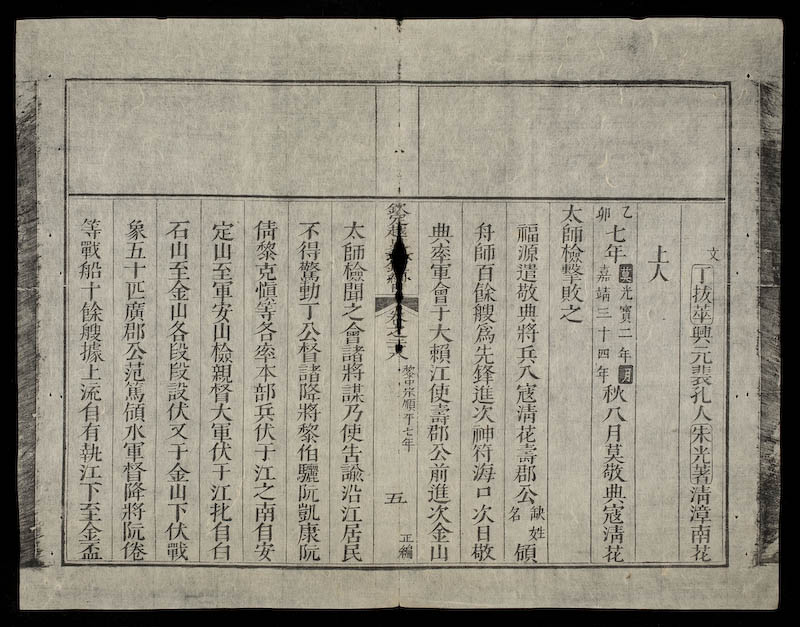 文丁拔萃興元裴孔人宋光著清漳南花
上人
乙卯七年莫光寶二年明嘉靖三十四年秋八月莫敬典寇淸花
太師檢擊敗之
福源遣敬典將兵入寇淸花壽郡公缺姓名領
舟師百餘艘爲先鋒進次神符海口次日敬
典率軍會于大賴江使壽郡公前進次金山
欽定越史 卷之二十八 黎中宗順平七年 五 正編
太師檢聞之會諸將謀乃使告諭沿江居民
不得驚動丁公督諸降將黎伯驪阮凱康阮
倩黎克愼等各率本部兵伏于江之南自安
定山至軍安山檢親督大軍伏于江北自白
石山至金山各段段設伏又于金山下伏戰
象五十匹廣郡公范篤領水軍督降將阮倦
等戰船十餘艘據上流自有執江下至金盃